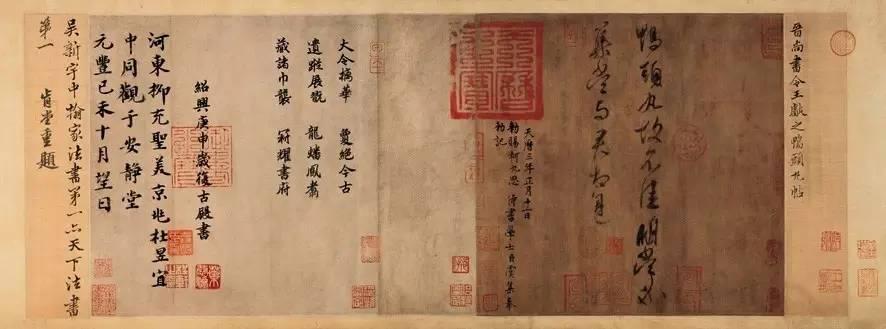 晉尚書令王獻之鴨頭丸帖
鴨頭丸故不佳明當必
集當与君相見
天曆三年正月十二日
敕賜柯九思 侍書學士臣虞集奉
敕記
大令摛華 夐絕今古
遺蹤展玩 龍蟠鳳翥
藏諸巾襲 冞耀書府
紹興庚申歲復古殿書
河東柳充聖美京兆杜昱宜
中同觀于安靜堂
元豐己未十月望日
吳新宇中翰家法書第一亦天下法書
第一 肯堂重題